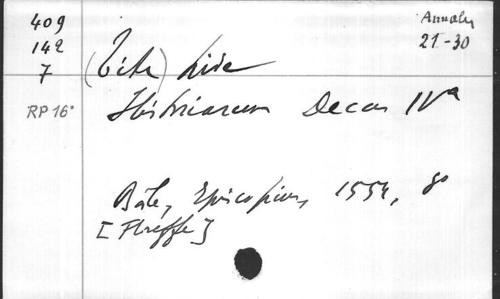 409
142
7
RP 16°
Annales
21-30
(Tite) Live
Historiarum Decas IVa
Bâle, Episcopius, 1554, 8°